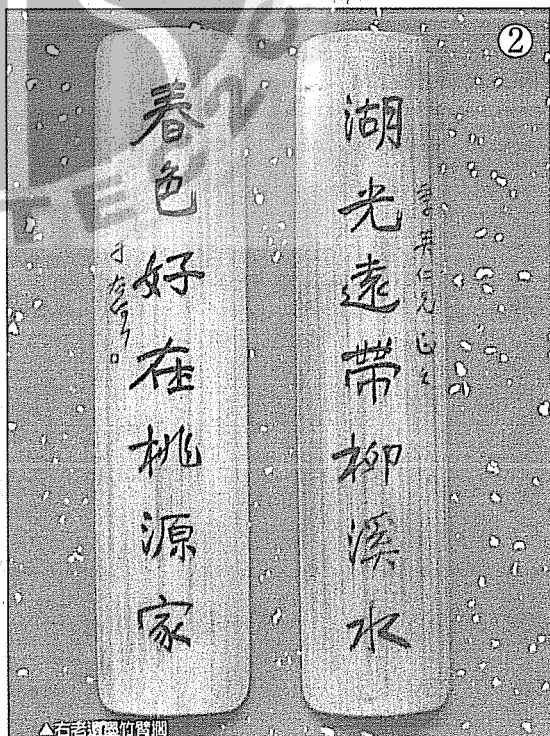 ②
湖光遠帶柳溪水
英仁兄正之
春色好在桃源家
于右任
▲右老遺墨竹臂擱